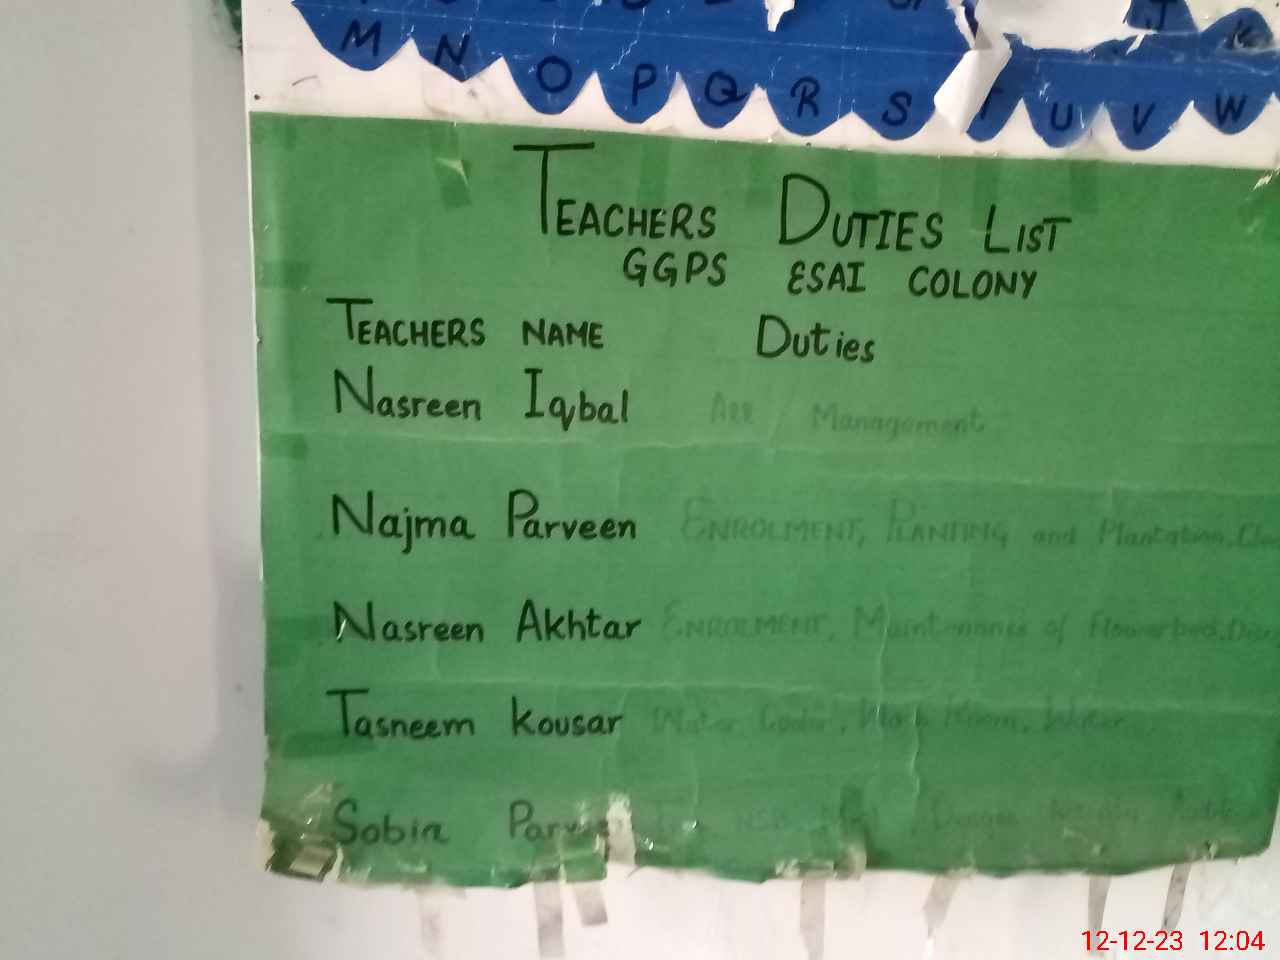 M N O P Q R S U V W
TEACHERS DUTIES LIST
GGPS ESAI COLONY
TEACHERS NAME Duties
Nasreen Iqbal All / Management
Najma Parveen ENROLMENT, PLANTING and Plantation,
Nasreen Akhtar ENROLMENT, Maintenance of flowerbed,
Tasneem kousar Water Cooler, Wash Room, Water
Sobia NSB Dengue Activity
12-12-23 12:04